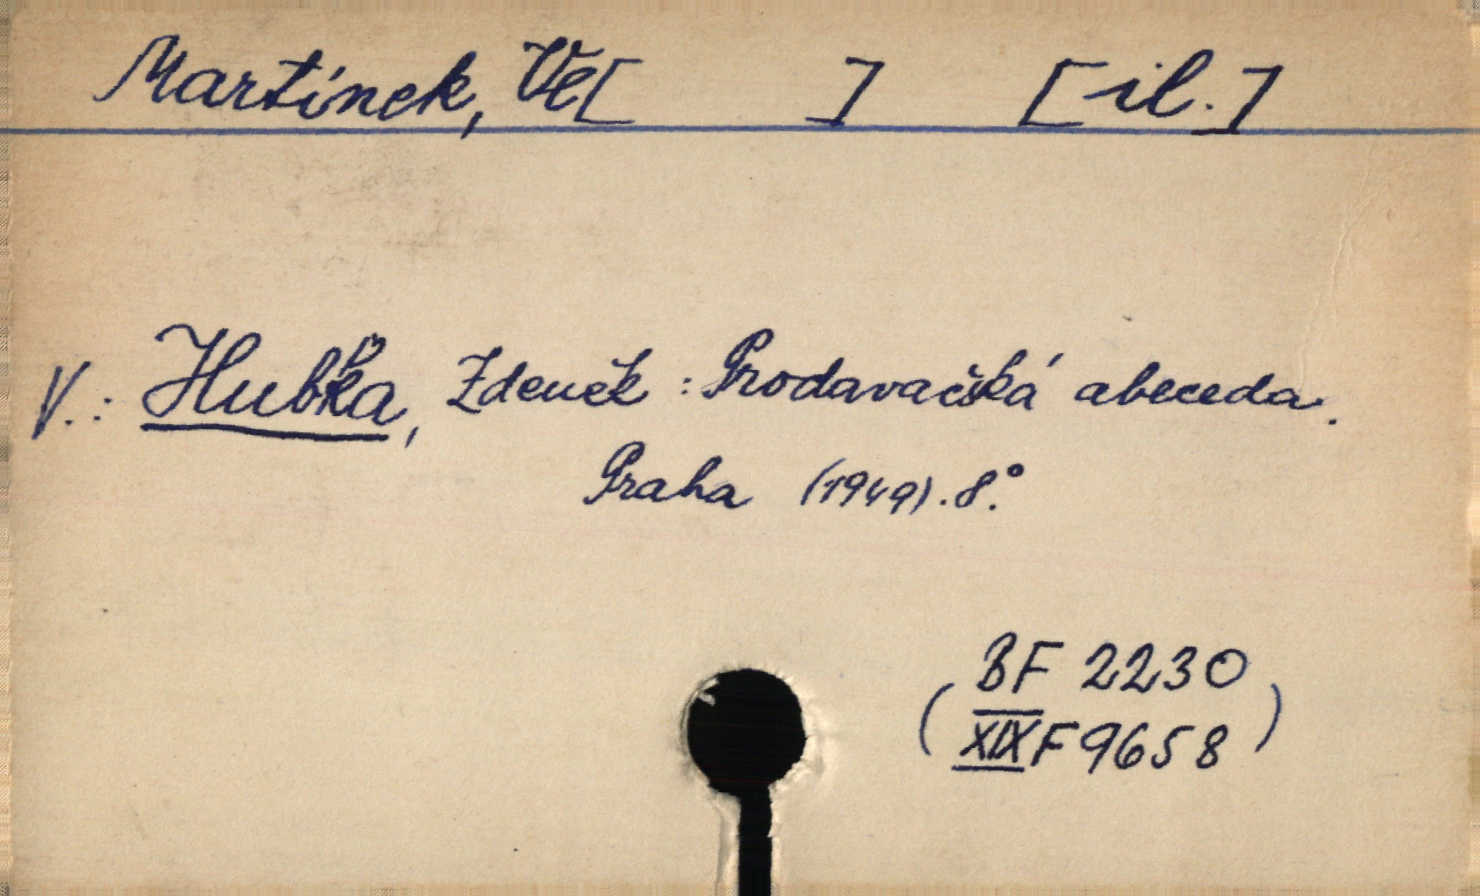 Martínek, Vl[ ] [il.]
V.: Hubka, Zdeněk: Prodavačská abeceda.
Praha (1949). 8.°
(BF 2230
XIX F 9658)